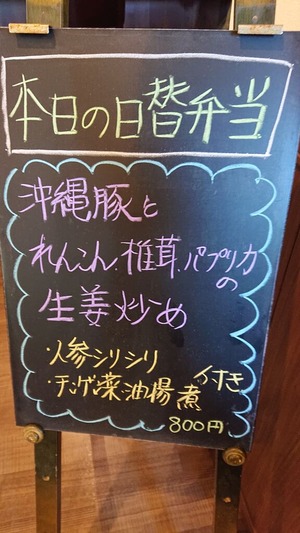 本日の日替弁当
沖縄豚と
れんこん、椎茸、パプリカ
の
生姜炒め
・人参シリシリ
・チンゲン菜油揚煮
付き
800円